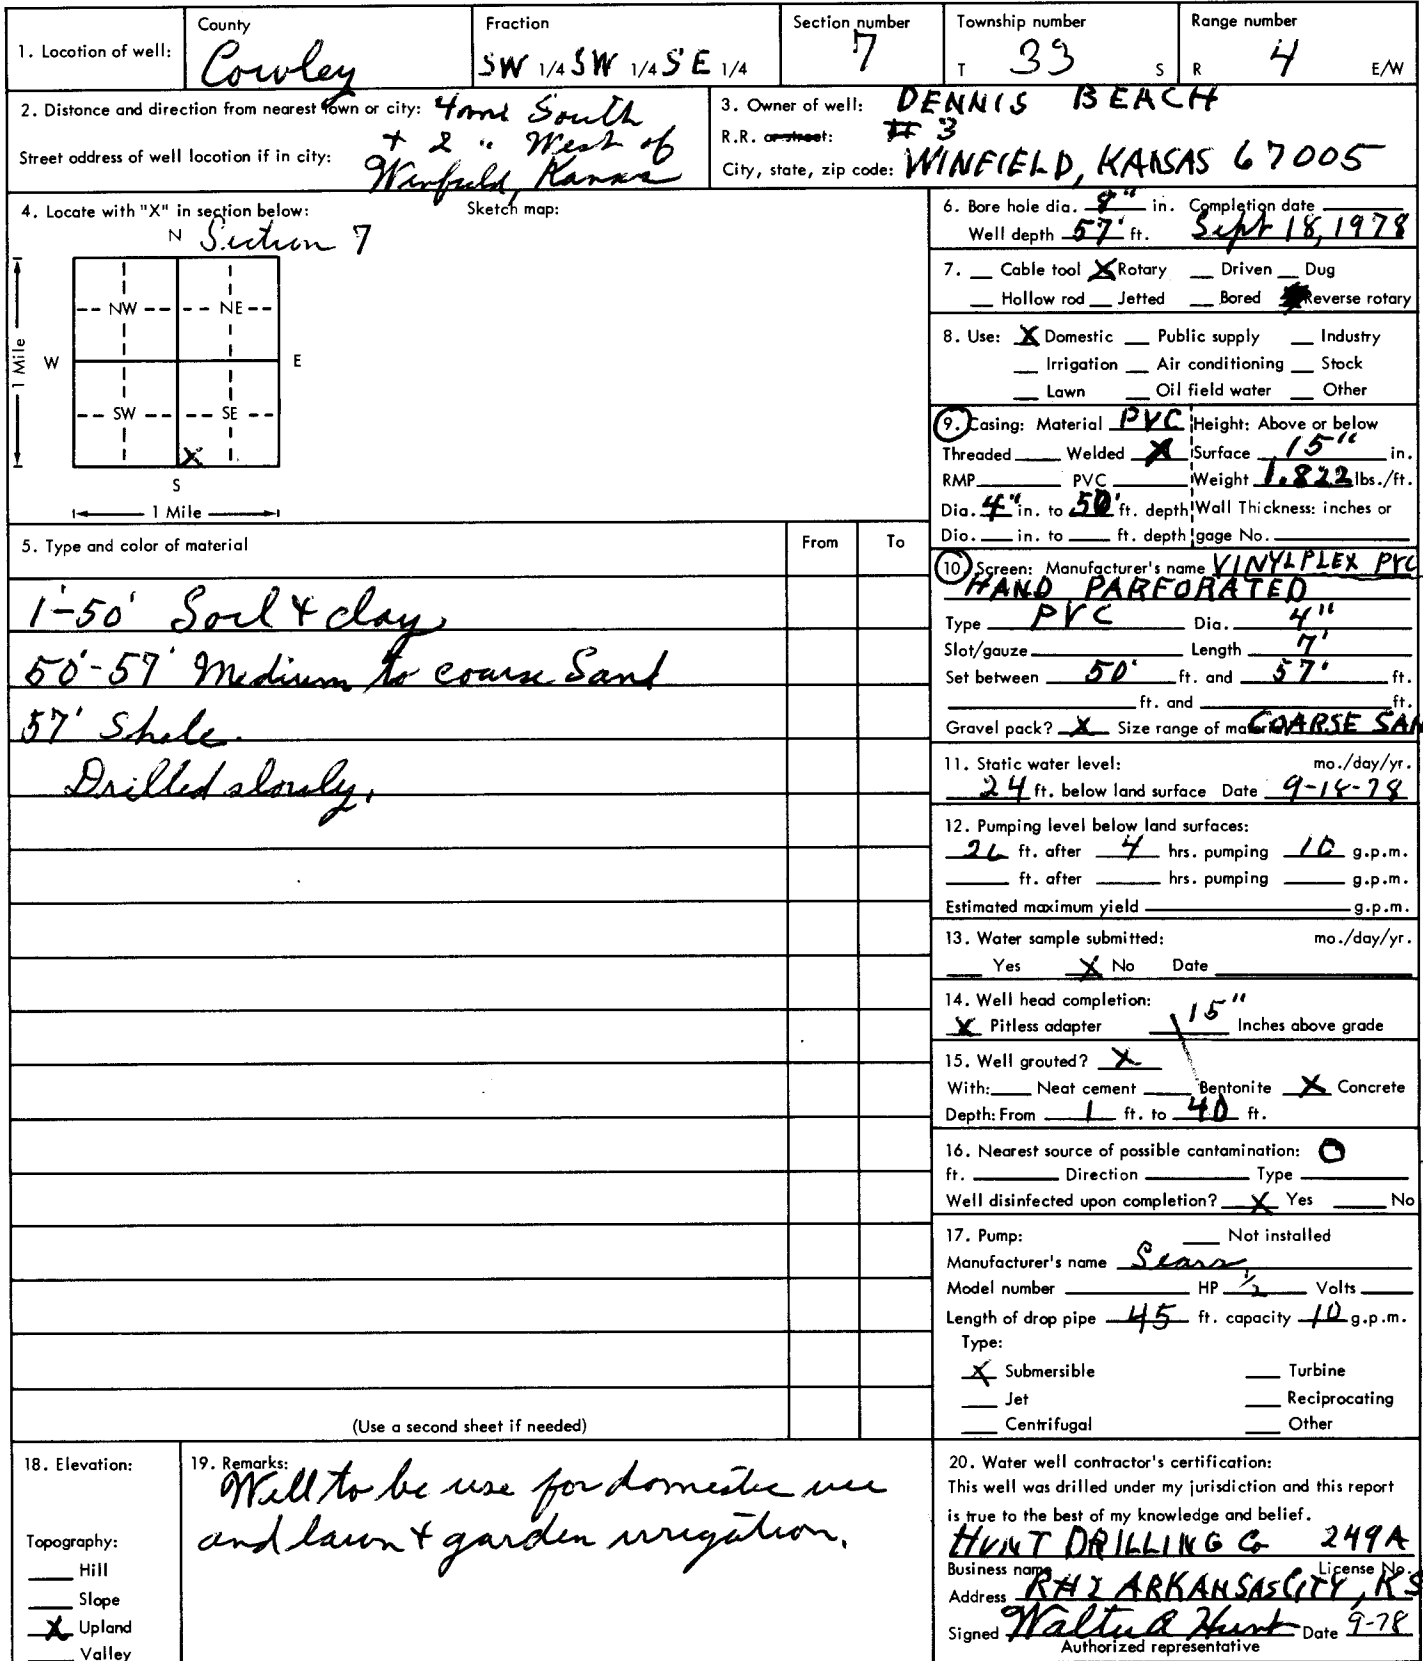 1. Location of well:
County
Cowley
Fraction
SW 1/4 SW 1/4 SE 1/4
Section number
7
Township number
T 33 S
Range number
R 4 E/W
2. Distance and direction from nearest town or city: 4 mi South
+ 2 " West of
Street address of well location if in city:
Winfield, Kansas
3. Owner of well: DENNIS BEACH
R.R. or street: # 3
City, state, zip code: WINFIELD, KANSAS 67005
4. Locate with "X" in section below:
Sketch map:
N Section 7
NW NE
W E
SW SE
X
S
1 Mile
1 Mile
5. Type and color of material From To
1'-50' Soil & clay
50'-57' Medium to coarse Sand
57' Shele.
Drilled slowly.
(Use a second sheet if needed)
6. Bore hole dia. 8" in. Completion date
Well depth 57' ft. Sept 18, 1978
7. __ Cable tool X Rotary __ Driven __ Dug
__ Hollow rod __ Jetted __ Bored Reverse rotary
8. Use: X Domestic __ Public supply __ Industry
__ Irrigation __ Air conditioning __ Stock
__ Lawn __ Oil field water __ Other
9. Casing: Material PVC Height: Above or below
Threaded ___ Welded X Surface 15" in.
RMP ___ PVC ___ Weight 1.822 lbs./ft.
Dia. 4" in. to 50' ft. depth Wall Thickness: inches or
Dia. ___ in. to ___ ft. depth gage No. ___
10. Screen: Manufacturer's name VINYLPLEX PVC
HAND PARFORATED
Type PVC Dia. 4"
Slot/gauze ___ Length 7'
Set between 50' ft. and 57' ft.
___ ft. and ___ ft.
Gravel pack? X Size range of material COARSE SAN
11. Static water level: mo./day/yr.
24 ft. below land surface Date 9-18-78
12. Pumping level below land surfaces:
26 ft. after 4 hrs. pumping 10 g.p.m.
___ ft. after ___ hrs. pumping ___ g.p.m.
Estimated maximum yield ___ g.p.m.
13. Water sample submitted: mo./day/yr.
__ Yes X No Date ___
14. Well head completion:
X Pitless adapter 15" Inches above grade
15. Well grouted? X
With: ___ Neat cement ___ Bentonite X Concrete
Depth: From 1 ft. to 40 ft.
16. Nearest source of possible cantamination: O
ft. ___ Direction ___ Type ___
Well disinfected upon completion? X Yes ___ No
17. Pump: ___ Not installed
Manufacturer's name Sears
Model number ___ HP 1/2 Volts ___
Length of drop pipe 45 ft. capacity 10 g.p.m.
Type:
X Submersible ___ Turbine
___ Jet ___ Reciprocating
___ Centrifugal ___ Other
18. Elevation:
Topography:
___ Hill
___ Slope
X Upland
___ Valley
19. Remarks:
Well to be use for domestic use
and lawn & garden irrigation.
20. Water well contractor's certification:
This well was drilled under my jurisdiction and this report
is true to the best of my knowledge and belief.
HUNT DRILLING Co 249A
Business name License No.
Address R#2 ARKANSAS CITY, KS
Signed Walter A Hunt Date 9-78
Authorized representative